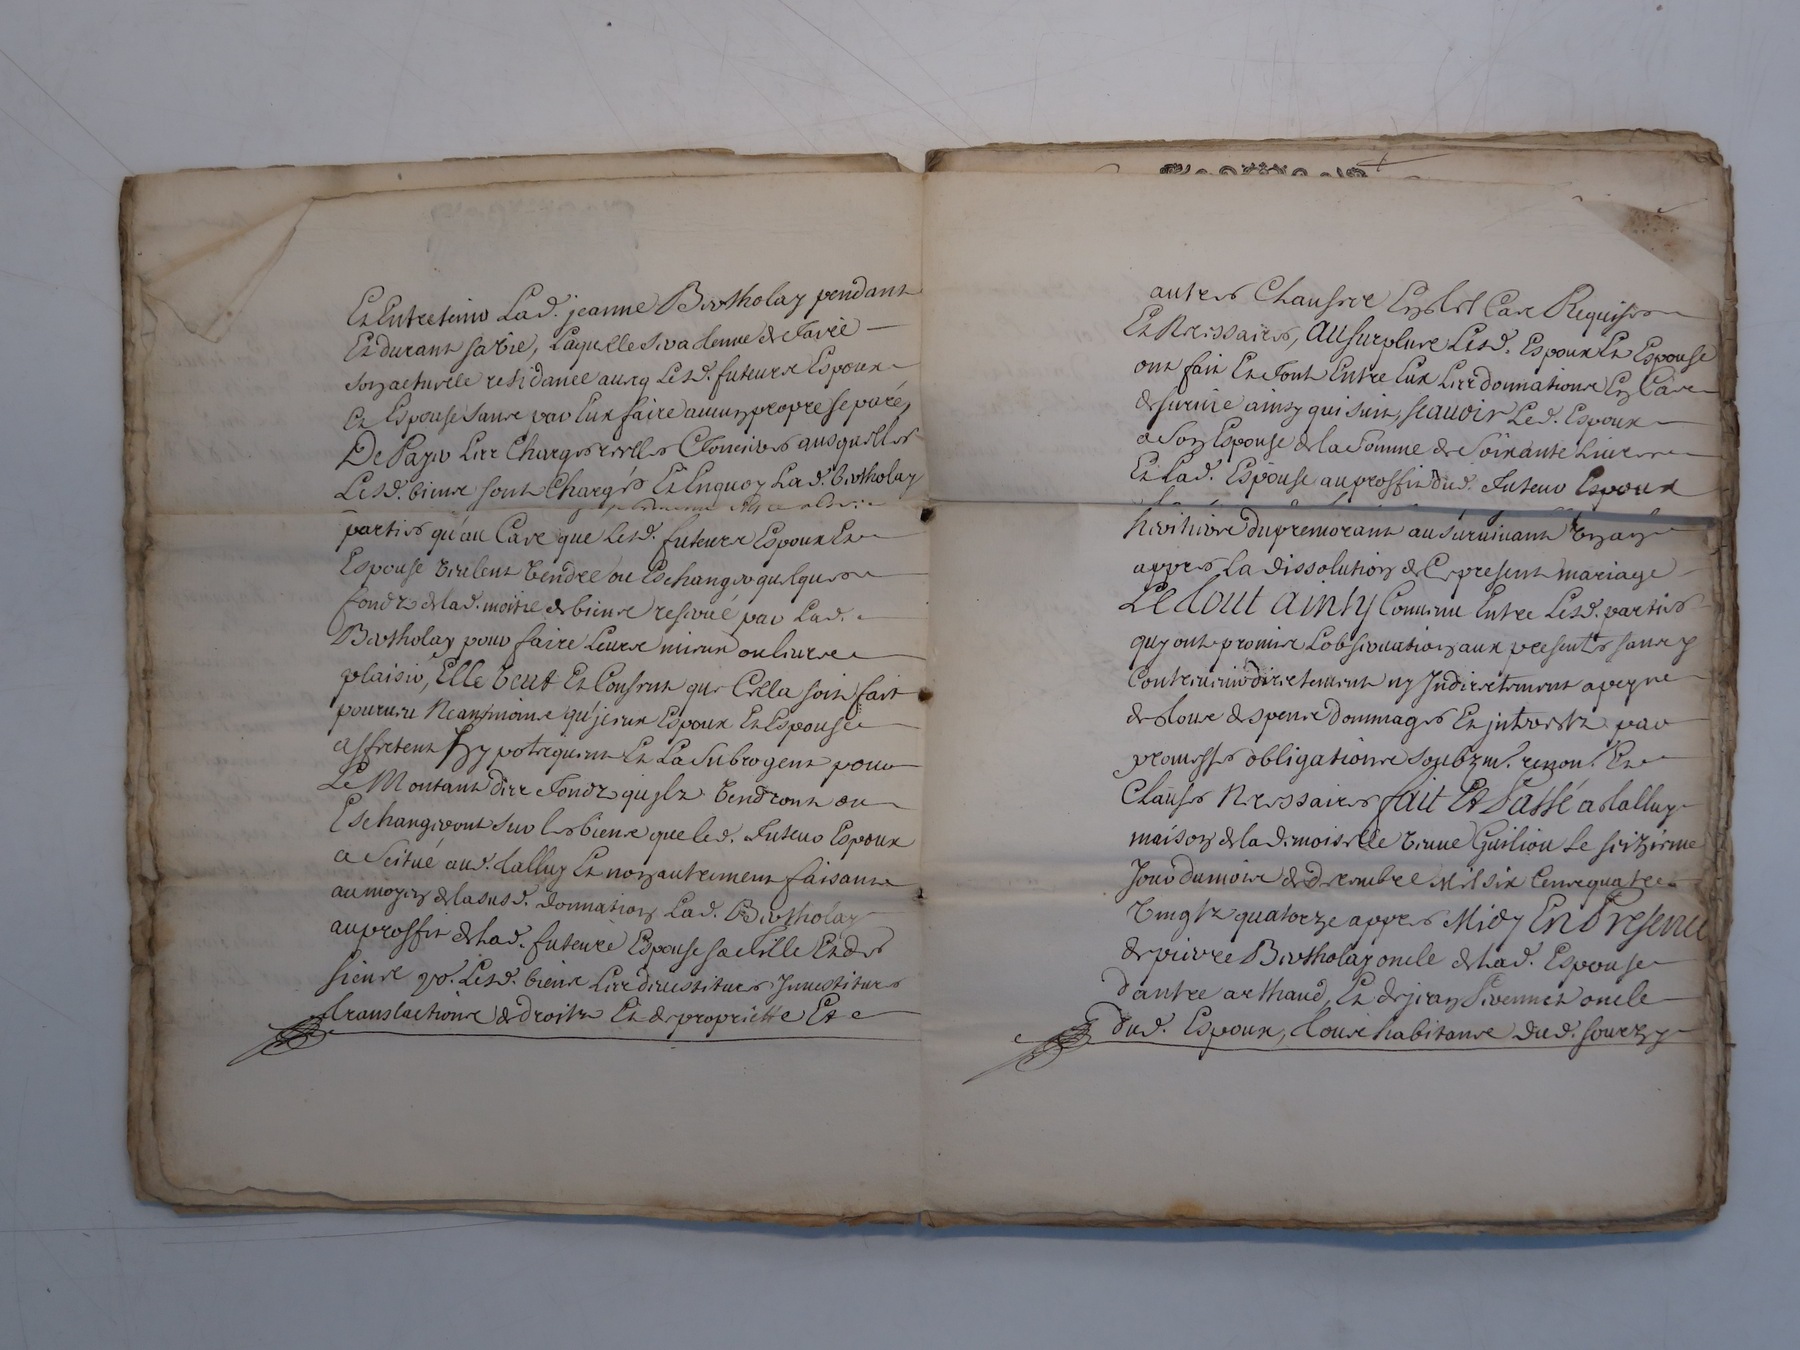 Et Entretenir Lad. jeanne Bertholay pendant
Et durant sa vie, Laquelle sera tenue de faire
son actuelle residance aveq Lesd. futeurs Espoux
Et Espouse sans par Eux faire aucun propre separé,
De Payer Les Charges reelles Foncieres ausquelles
Lesd. biens sont Chargés Et Enquoy Lad. Bertholay
parties qu'au Cas que Lesd. futeurs Espoux Et
Espouse veulent vendre ou Eschanger quelques
fondz de lad. moitié de biens reservée par Lad.
Bertholay pour faire Leurs mieux ou leurs
plaisir, Elle veut Et Consent que Cella soit fait
pourveu Neantmoins qu'jceux Espoux Et Espouse
affectent Hypotequent Et La Subrogent pour
Le Montant des Fondz qu'jlz vendront ou
Eschangeront sur les biens que led. Futeur Espoux
a Scitué aud. Talluy Et non autrement faisant
au moyen de lasusd. donnation Lad. Bertholay
au proffit de Lad. futeure Espouse sa Fille Et des
siens po. Lesd. biens Les devestitures Investitures
translactions de droitz Et de proprietté Et
autres Clauses En tel Cas Requises
Et Necessaires, Au surplus Lesd. Espoux Et Espouse
ont fait Et font Entre Eux Les donnations En Cas
de survie ainsy qui suit, scauoir Led. Espoux
a Son Espouse de la Somme de Soixante Livres
Et Lad. Espouse au proffit dud. Futeur Espoux
heritiers du premorant au survivant un an
appres La dissolution de Ce present mariage
Le tout ainsy Convenu Entre Lesd. parties
quy ont promis L'observation aux presentes sans y
Contrevenir directement ny Indirectement a peyne
de tous despens dommages Et jnteretz par
promesses obligations soubzm. renon. Et
Clauses Necessaires fait Et Passé a Talluy
maison de la Demoiselle veuve Guiliou Le seizième
Jour du mois de decembre Mil six Cens quatre
vingtz quatorze appres Midy En Presence
de pierre Bertholay oncle de Lad. Espouse
d'antre arthaud, Et de jean Pivennet oncle
dud. Espoux, tous habitans dud. sourzy